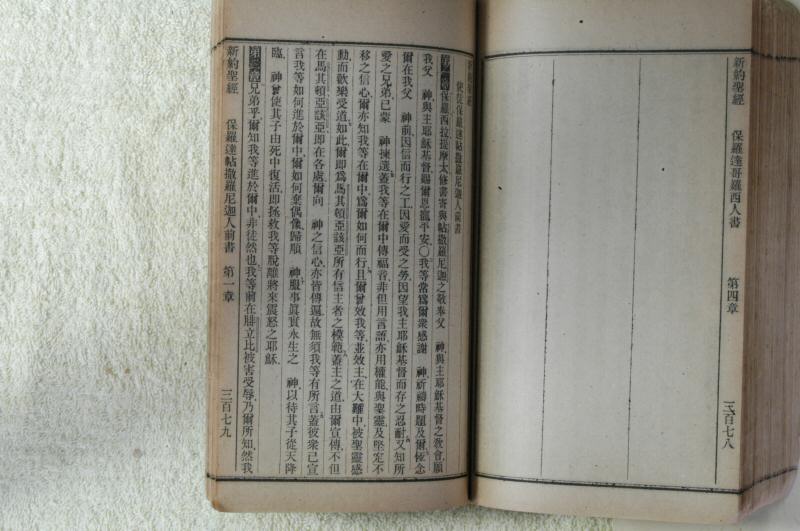 新約聖經 保羅達哥羅西人書 第四章 三百七八
使徒保羅達帖撒羅尼迦人前書
保羅西拉提摩太修書寄與帖撒羅尼迦之敬奉父 神與主耶穌基督之敎會願
我父 神與主耶穌基督賜爾恩寵平安〇我等常爲爾衆感謝 神祈禱時題及爾恆念
爾在我父 神前因信而行之工因愛而受之勞因望我主耶穌基督而存之忍耐又知所
愛之兄弟已蒙 神揀選蓋我等在爾中傳福音非但用言語亦用權能與聖靈及堅定不
移之信心爾亦知我等在爾中爲爾如何而行且爾曾效我等並效主在大難中被聖靈感
動而歡樂受道如此爾即爲馬其頓亞該亞所有信主者之模範蓋主之道由爾宣傳不但
在馬其頓亞該亞即在各處爾向 神之信心亦皆傳遍故無須我等有所言蓋彼衆已宣
言我等如何進於爾中爾如何棄偶像歸順 神服事眞實永生之 神以待其子從天降
臨 神曾使其子由死中復活即拯救我等脫離將來震怒之耶穌
兄弟乎爾知我等進於爾中非徒然也我等前在腓立比被害受辱乃爾所知然我
新約聖經 保羅達帖撒羅尼迦人前書 第一章 三百七九